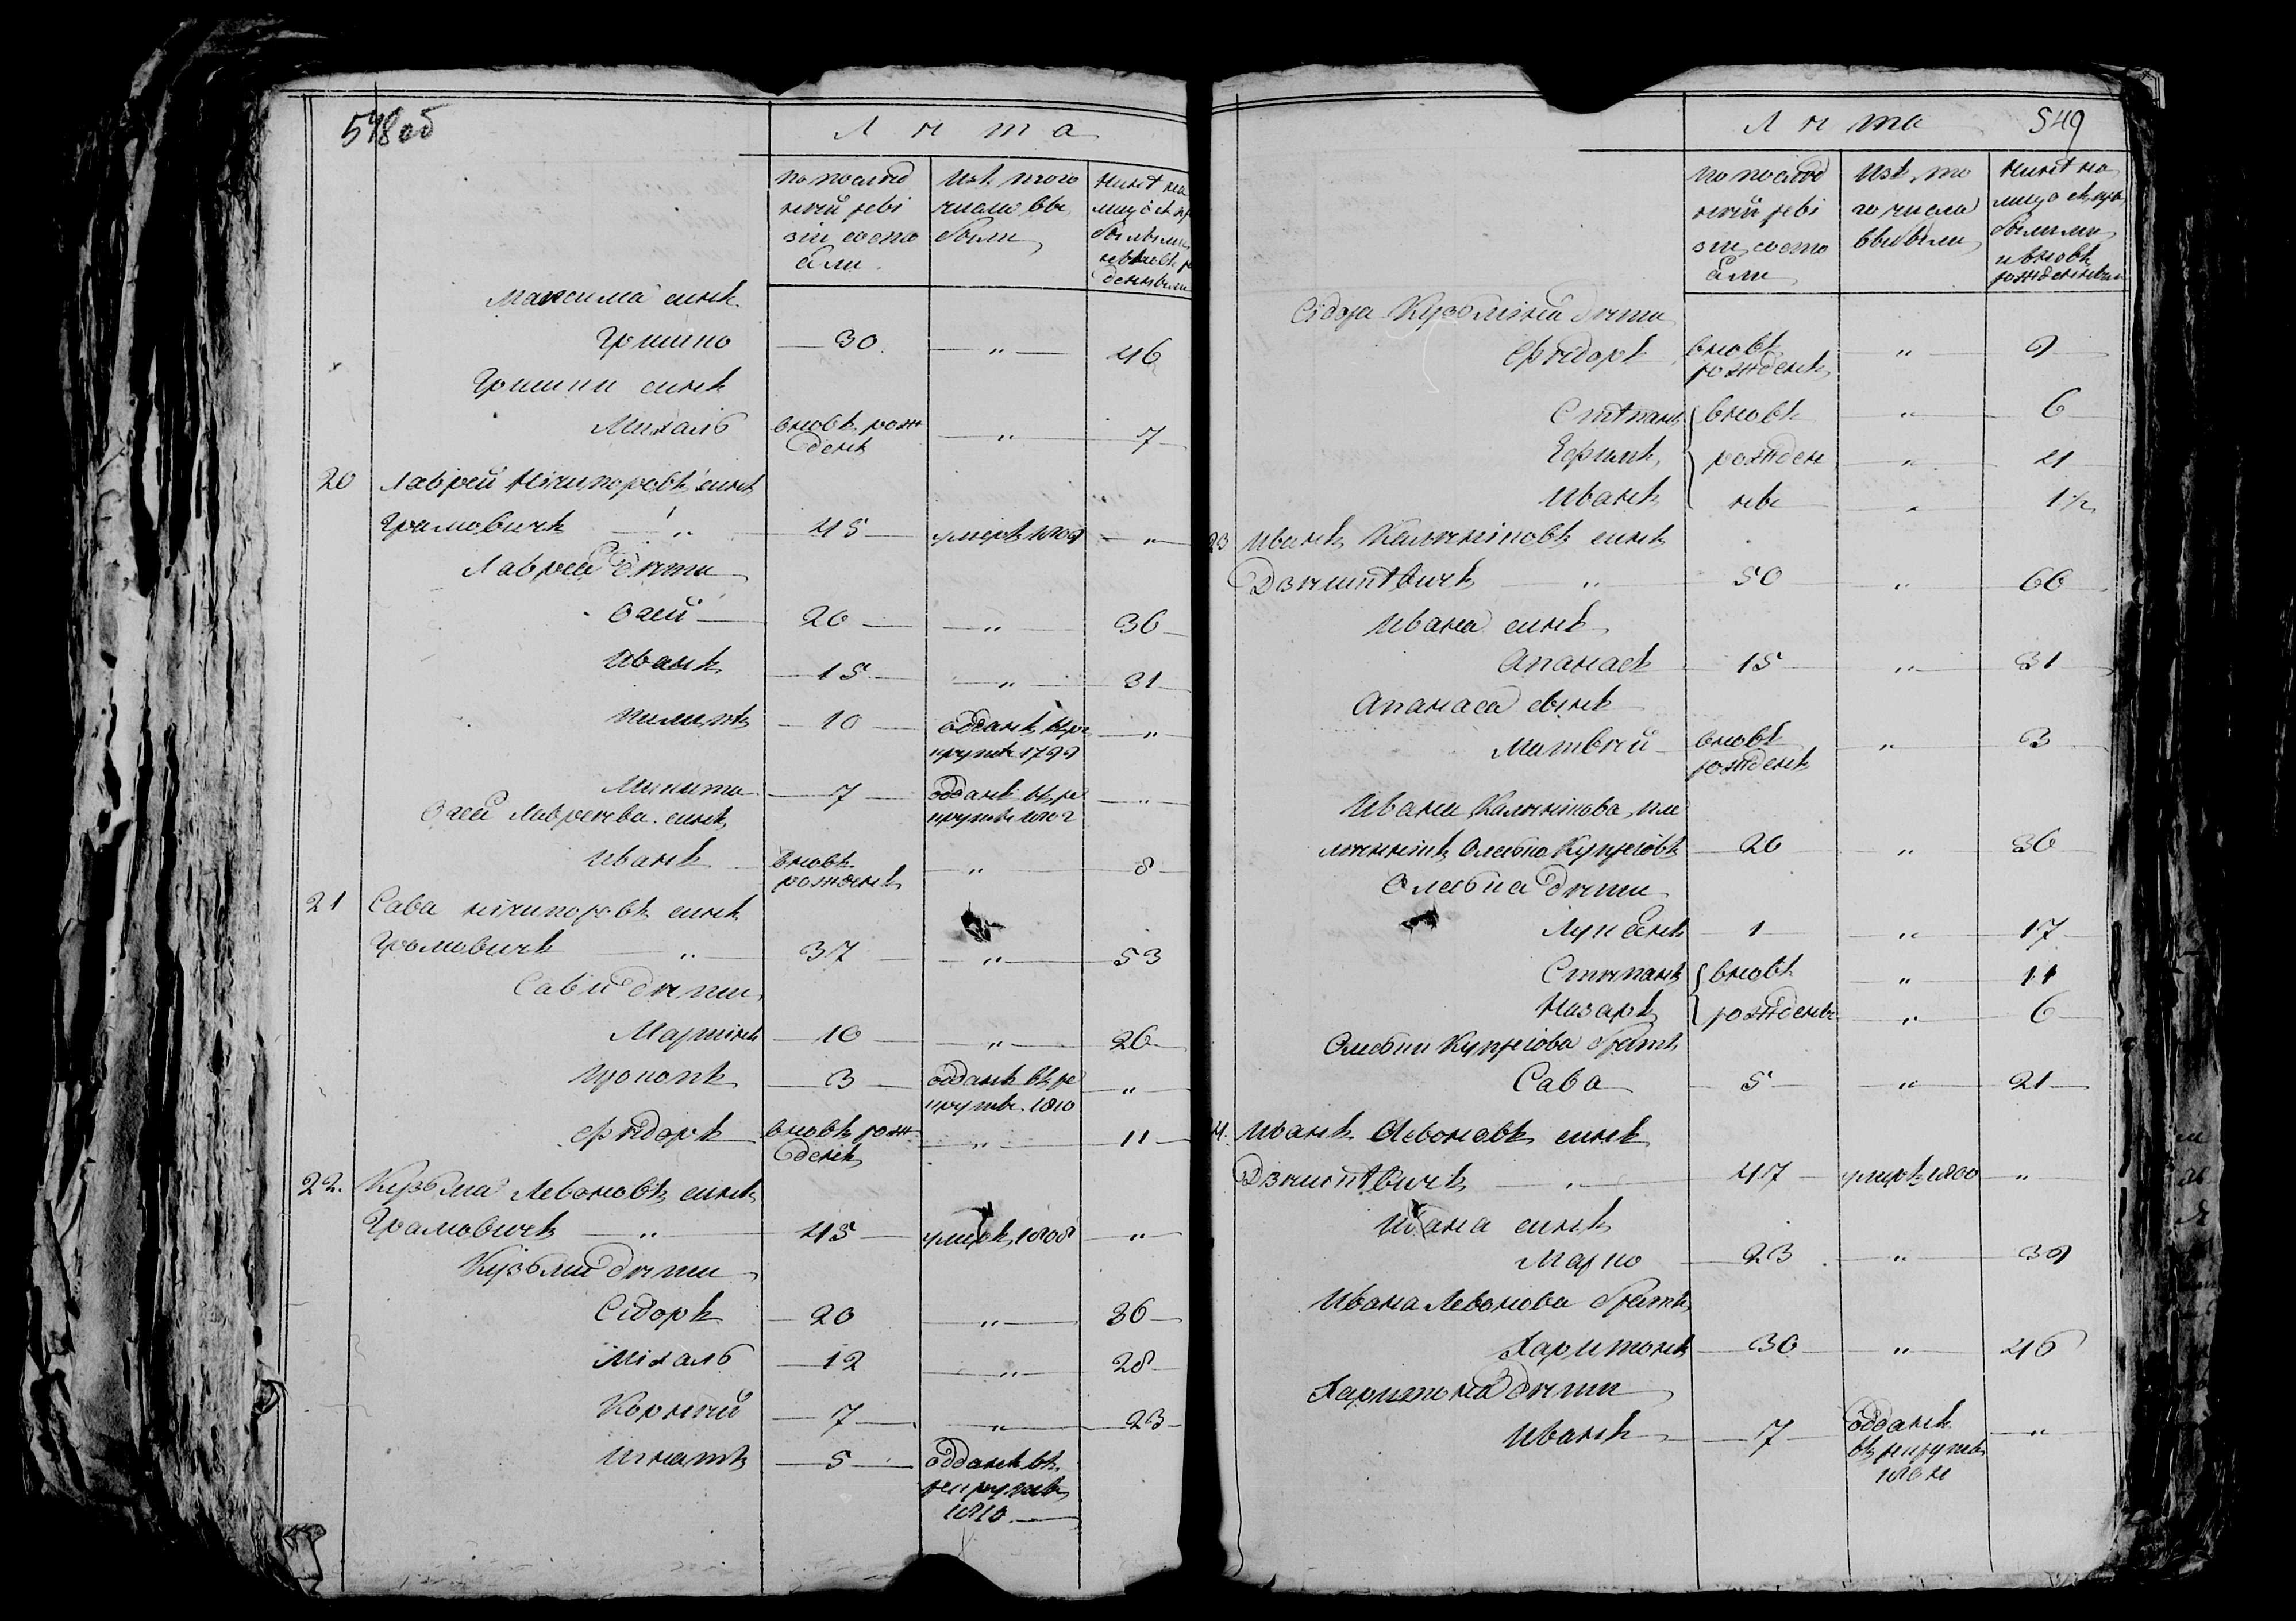 548об
Лѣта
по послѣд
ней реві
зіи состо
али
Изъ того
числа вы
были
Максима синъ
Гришко — 30 — „ — 46
Гришки синъ
Михаль вновь рож
денъ — „ — 7
20 Лаврей Нічипоровъ синъ
Грамовичъ — „ — 45 — умеръ 1808 — „
Лаврея дѣти
Огей — 20 — „ — 36
Иванъ — 15 — „ — 31
Пилипъ — 10 — odданъ въ ре
круты 1799 — „
Микита — 7 — отданъ въ ре
круты 1802 — „
Огея Лавреева синъ
Иванъ вновь
рожденъ — „ — 8
21 Сава Нічипоровъ синъ
Грамовичъ — „ — 37 — „ — 53
Савы дѣти
Мартинъ — 10 — „ — 26
Прокопъ — 3 — отданъ въ ре
круты 1810 — „
Фѣдоръ вновь рож
денъ — „ — 11
22. Кузьма Левоновъ синъ
Грамовичъ — „ — 45 — умеръ 1808 — „
Кузьмы дѣти
Сідоръ — 20 — „ — 36
Міхаль — 12 — „ — 28
Корнѣй — 7 — „ — 23
Игнатъ — 5 — отданъ въ
рекруты
1810 —
549
Лѣта
по послѣд
ней реві
зіи состо
али
Изъ то
го числа
выбыли
Нинѣ на
лицо съ при
былыми
и вновь
рожденными
Сідора Кузьміна дѣти
Фѣдоръ вновь
рожденъ „ 9
Стѣпанъ вновь „ 6
Ефимъ рожден „ 4
Иванъ ные „ 1½
23 Иванъ Калѣніковъ синъ
Дзѣшнѣвичъ — „ — 50 „ 66
Ивана синъ
Апанасъ 15 „ 31
Апанаса сынъ
Матвѣй вновь
рожденъ „ 3
Ивана Калѣнікова пле
мѣнникъ Олексѣй 20 „ 36
дѣти
Лукъянъ 1 „ 17
Стѣпанъ вновь „ 11
Назаръ рожденны „ 6
братъ
Сава 5 „ 21
24. Иванъ Левоновъ синъ
Дзѣшнѣвичъ — „ — 47 умеръ 1800 „
Ивана синъ
Марко 23 „ 39
Ивана Левонова братъ
Харитонъ 30 „ 46
Харитона дѣти
Иванъ 7 отданъ
въ рекруты
„